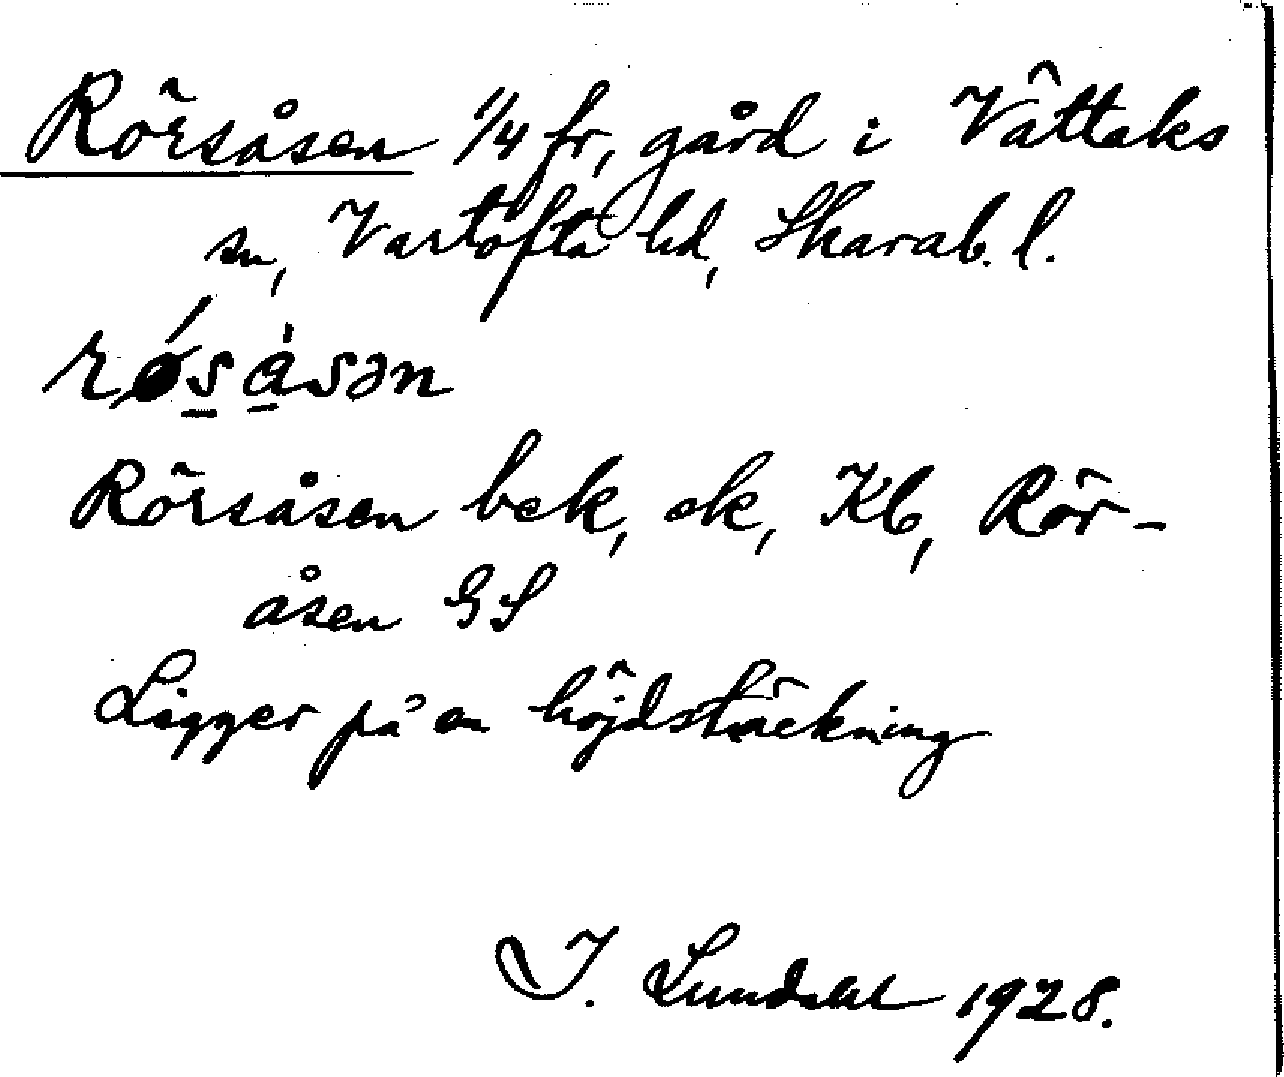 Rörsåsen 1/4 fr, gård i Vättaks
sn, Vartofta hd, Skarab. l.
rǿsàsən
Rörsåsen bek, ek, Kb, Rör-
åsen GS
Ligger på en höjdsträckning
I. Lundahl 1928.